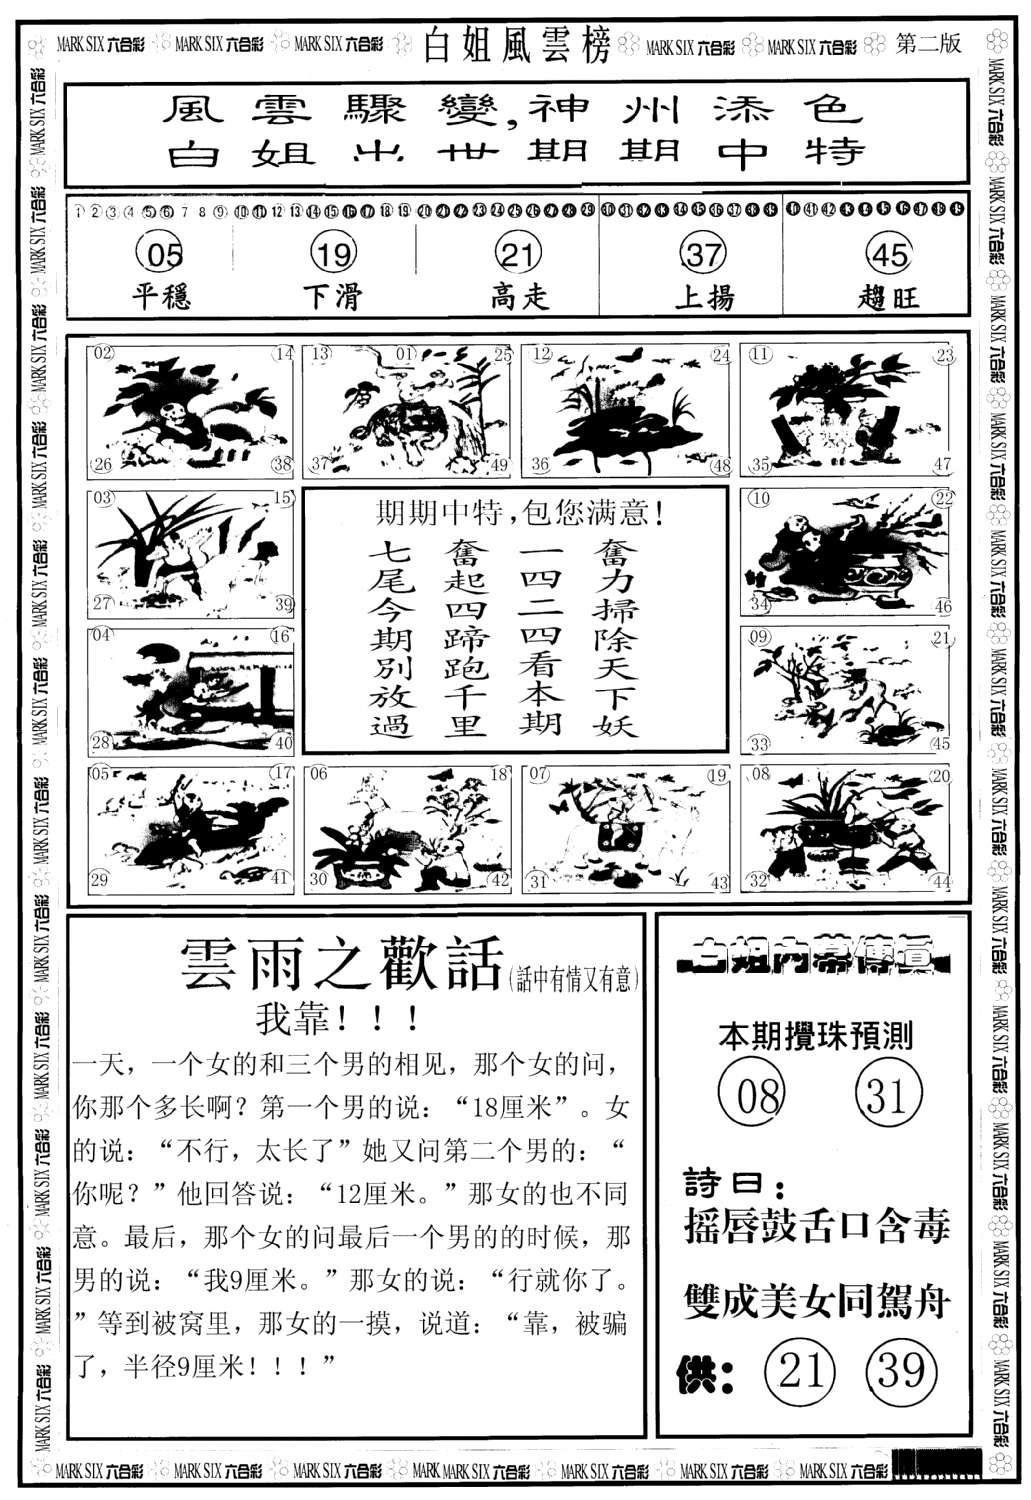 MARK SIX 六合彩 MARK SIX 六合彩 MARK SIX 六合彩 白姐風雲榜 MARK SIX 六合彩 MARK SIX 六合彩 第二版
風雲驟變,神州添色
白姐出世期期中特
1 2 3 4 5 6 7 8 9 10 11 12 13 14 15 16 17 18 19 20 21 22 23 24 25 26 27 28 29 30 31 32 33 34 35 36 37 38 39 40 41 42 43 44 45 46 47 48 49
05 19 21 37 45
平穩 下滑 高走 上揚 趨旺
02 14 13 01 25 12 24 11 23
26 38 37 49 36 48 35 47
03 15 10 22
27 39 34 46
04 16 09 21
28 40 33 45
05 17 06 18 07 19 08 20
29 41 30 42 31 43 32 44
期期中特,包您满意!
奮力掃除天下妖
一四二四看本期
奮起四蹄跑千里
七尾今期別放過
雲雨之歡話(話中有情又有意)
我靠!!!
一天，一个女的和三个男的相见，那个女的问，
你那个多长啊？第一个男的说：“18厘米”。女
的说：“不行，太长了”她又问第二个男的：“
你呢？”他回答说：“12厘米。”那女的也不同
意。最后，那个女的问最后一个男的的时候，那
男的说：“我9厘米。”那女的说：“行就你了。
”等到被窝里，那女的一摸，说道：“靠，被骗
了，半径9厘米！！！”
白姐內幕傳真
本期攪珠預測
08 31
詩曰：
摇唇鼓舌口含毒
雙成美女同駕舟
供：21 39
MARK SIX 六合彩 MARK SIX 六合彩 MARK SIX 六合彩 MARK MARK SIX 六合彩 MARK SIX 六合彩 MARK SIX 六合彩 MARK SIX 六合彩